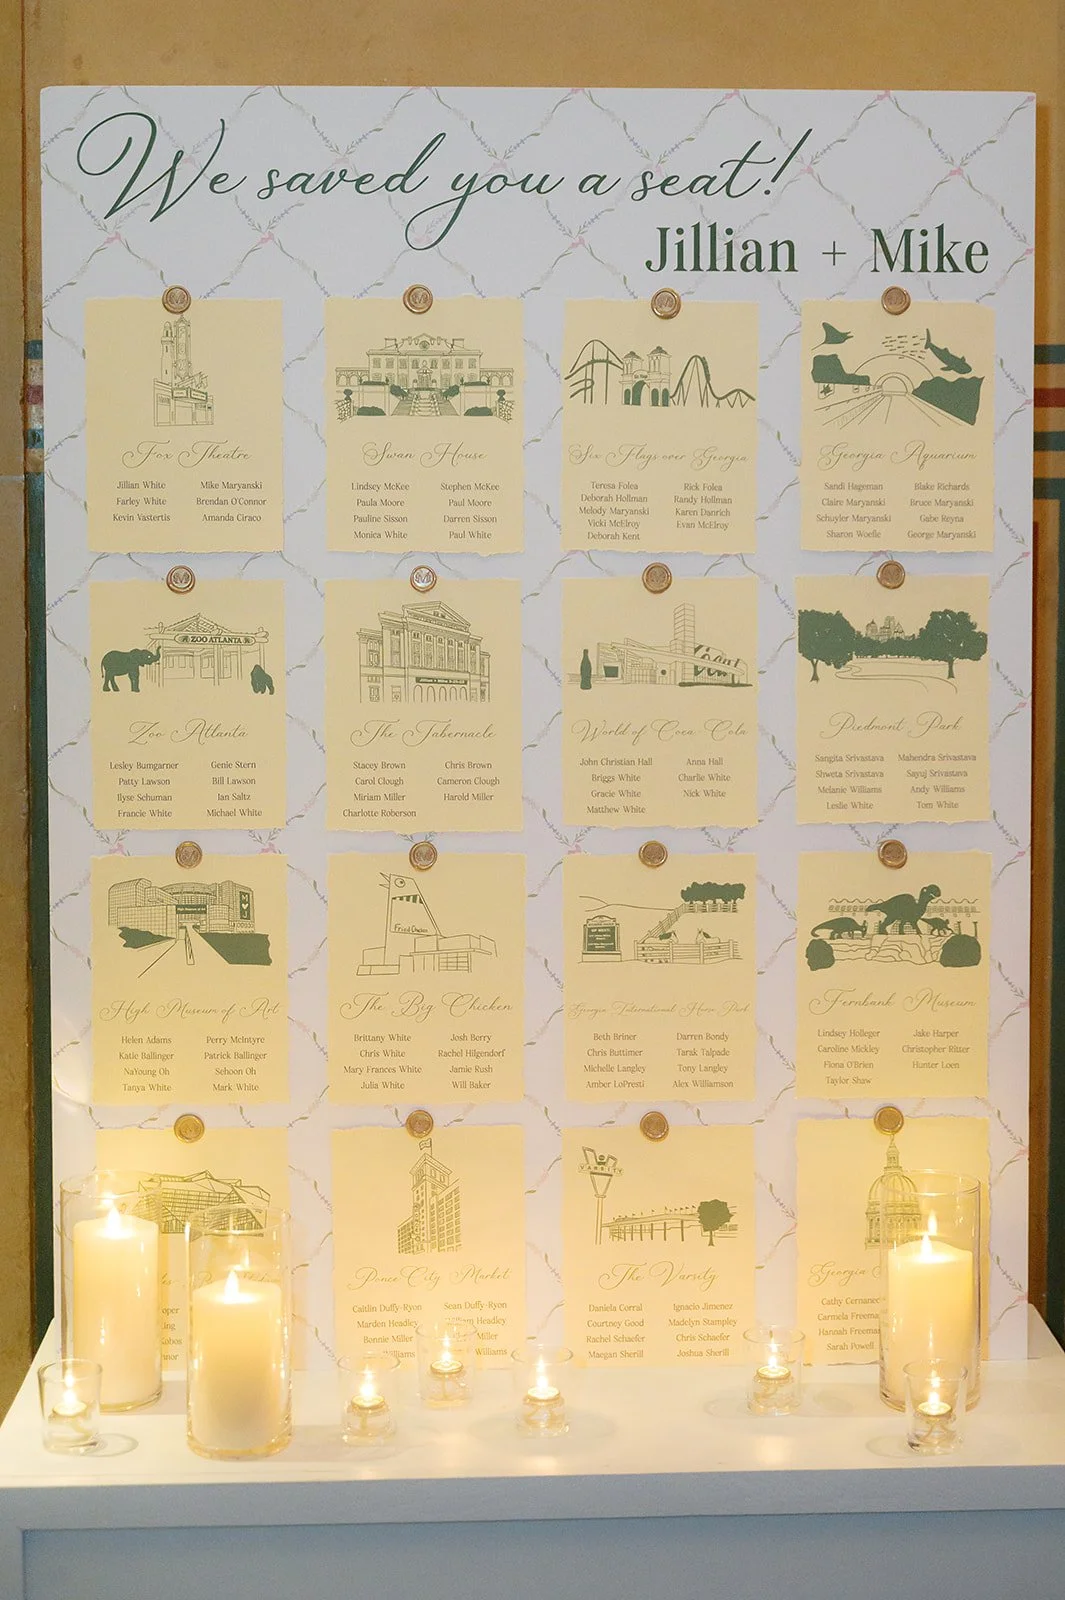 We saved you a seat!
Jillian + Mike
Fox Theatre
Jillian White Mike Maryanski
Farley White Brendan O'Connor
Kevin Vastertis Amanda Ciraco
Swan House
Lindsey McKee Stephen McKee
Paula Moore Paul Moore
Pauline Sisson Darren Sisson
Monica White Paul White
Six Flags over Georgia
Teresa Folea Rick Folea
Deborah Hollman Randy Hollman
Melody Maryanski Karen Danrich
Vicki McElroy Evan McElroy
Deborah Kent
Georgia Aquarium
Sandi Hageman Blake Richards
Claire Maryanski Bruce Maryanski
Schuyler Maryanski Gabe Reyna
Sharon Woelle George Maryanski
ZOO ATLANTA
Zoo Atlanta
Lesley Bumgarner Genie Stern
Patty Lawson Bill Lawson
Ilyse Schuman Ian Saltz
Francie White Michael White
The Tabernacle
Stacey Brown Chris Brown
Carol Clough Cameron Clough
Miriam Miller Harold Miller
Charlotte Roberson
World of Coca Cola
John Christian Hall Anna Hall
Briggs White Charlie White
Gracie White Nick White
Matthew White
Piedmont Park
Sangita Srivastava Mahendra Srivastava
Shweta Srivastava Sayuj Srivastava
Melanie Williams Andy Williams
Leslie White Tom White
M
J
High Museum of Art
Helen Adams Perry McIntyre
Katie Ballinger Patrick Ballinger
NaYoung Oh Sehoon Oh
Tanya White Mark White
Fried Chicken
The Big Chicken
Brittany White Josh Berry
Chris White Rachel Hilgendorf
Mary Frances White Jamie Rush
Julia White Will Baker
Georgia International Horse Park
Beth Briner Darren Bondy
Chris Buttimer Tarak Talpade
Michelle Langley Tony Langley
Amber LoPresti Alex Williamson
Fernbank Museum
Lindsey Holleger Jake Harper
Caroline Mickley Christopher Ritter
Fiona O'Brien Hunter Loen
Taylor Shaw
Ponce City Market
Caitlin Duffy-Ryon Sean Duffy-Ryon
Marden Headley Headley
Bonnie Miller Miller
Williams
VARSITY
The Varsity
Daniela Corral Ignacio Jimenez
Courtney Good Madelyn Stampley
Rachel Schaefer Chris Schaefer
Maegan Sherill Joshua Sherill
Georgia
Cathy
Carmela
Hannah
Sarah Powell